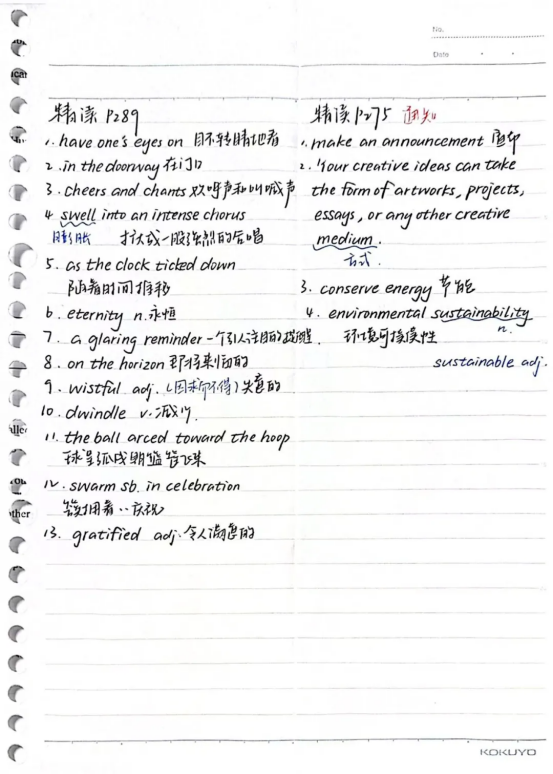 No.
Date
精读 P289
1. have one's eyes on 目不转睛地看
2. in the doorway 在门口
3. cheers and chants 欢呼声和叫喊声
4 swell into an intense chorus
膨胀 扩大成一股强烈的合唱
5. as the clock ticked down
随着时间推移
6. eternity n.永恒
7. a glaring reminder 一个引人注目的提醒
8. on the horizon 即将来临的
9. wistful adj.(因求而不得)失意的
10. dwindle v.减少
11. the ball arced toward the hoop
球呈弧线朝篮筐飞来
12. swarm sb. in celebration
簇拥着..庆祝
13. gratified adj.令人满意的
精读 P275 通知
1. make an announcement 通知
2. Your creative ideas can take
the form of artworks, projects,
essays, or any other creative
medium.
方式.
3. conserve energy 节能
4. environmental sustainability
环境可持续性 n.
sustainable adj.
KOKUYO